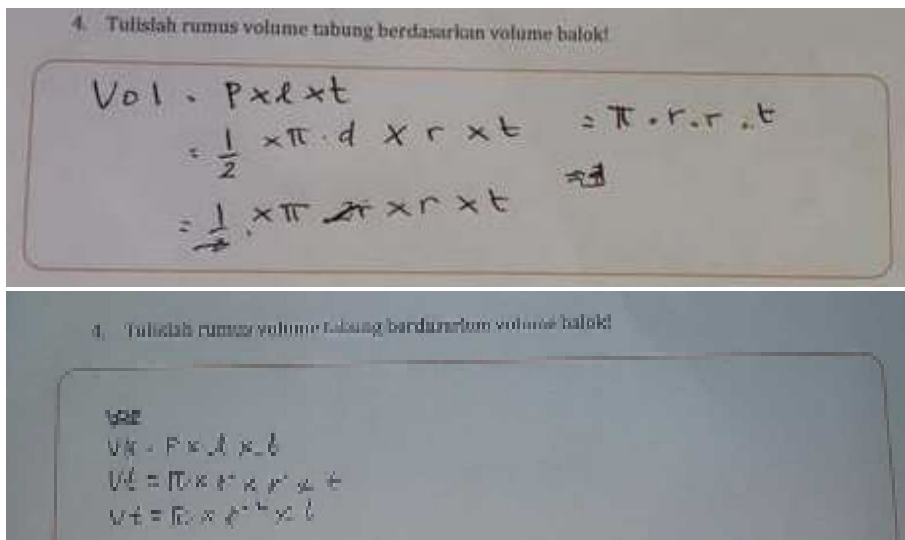 4. Tulislah rumus volume tabung berdasarkan volume balok!
Vol = p x l x t
= 1/2 x π . d x r x t = π . r . r . t
= 1/2 . x π 2r x r x t
4. Tulislah rumus volume tabung berdasarkan volume balok!
Vt = π x r x r x t
Vt = π x r² x t